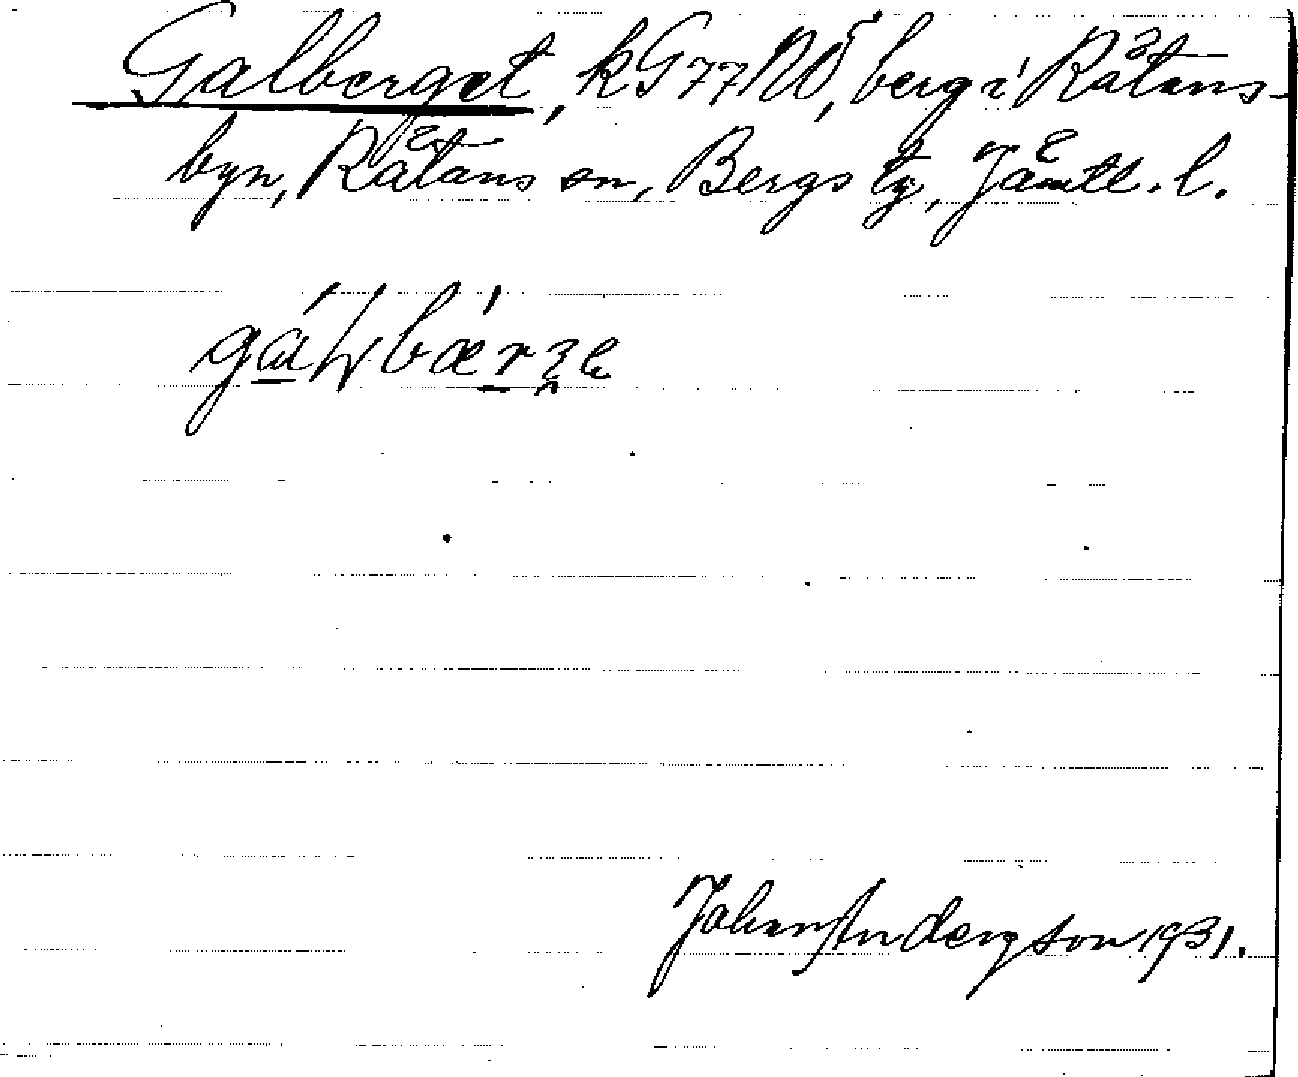 Galberget, kG 77 NO, berg i Rätans-
byn, Rätans sn, Bergs tg, Jämtl. l.
Johan Anderzson 1931.